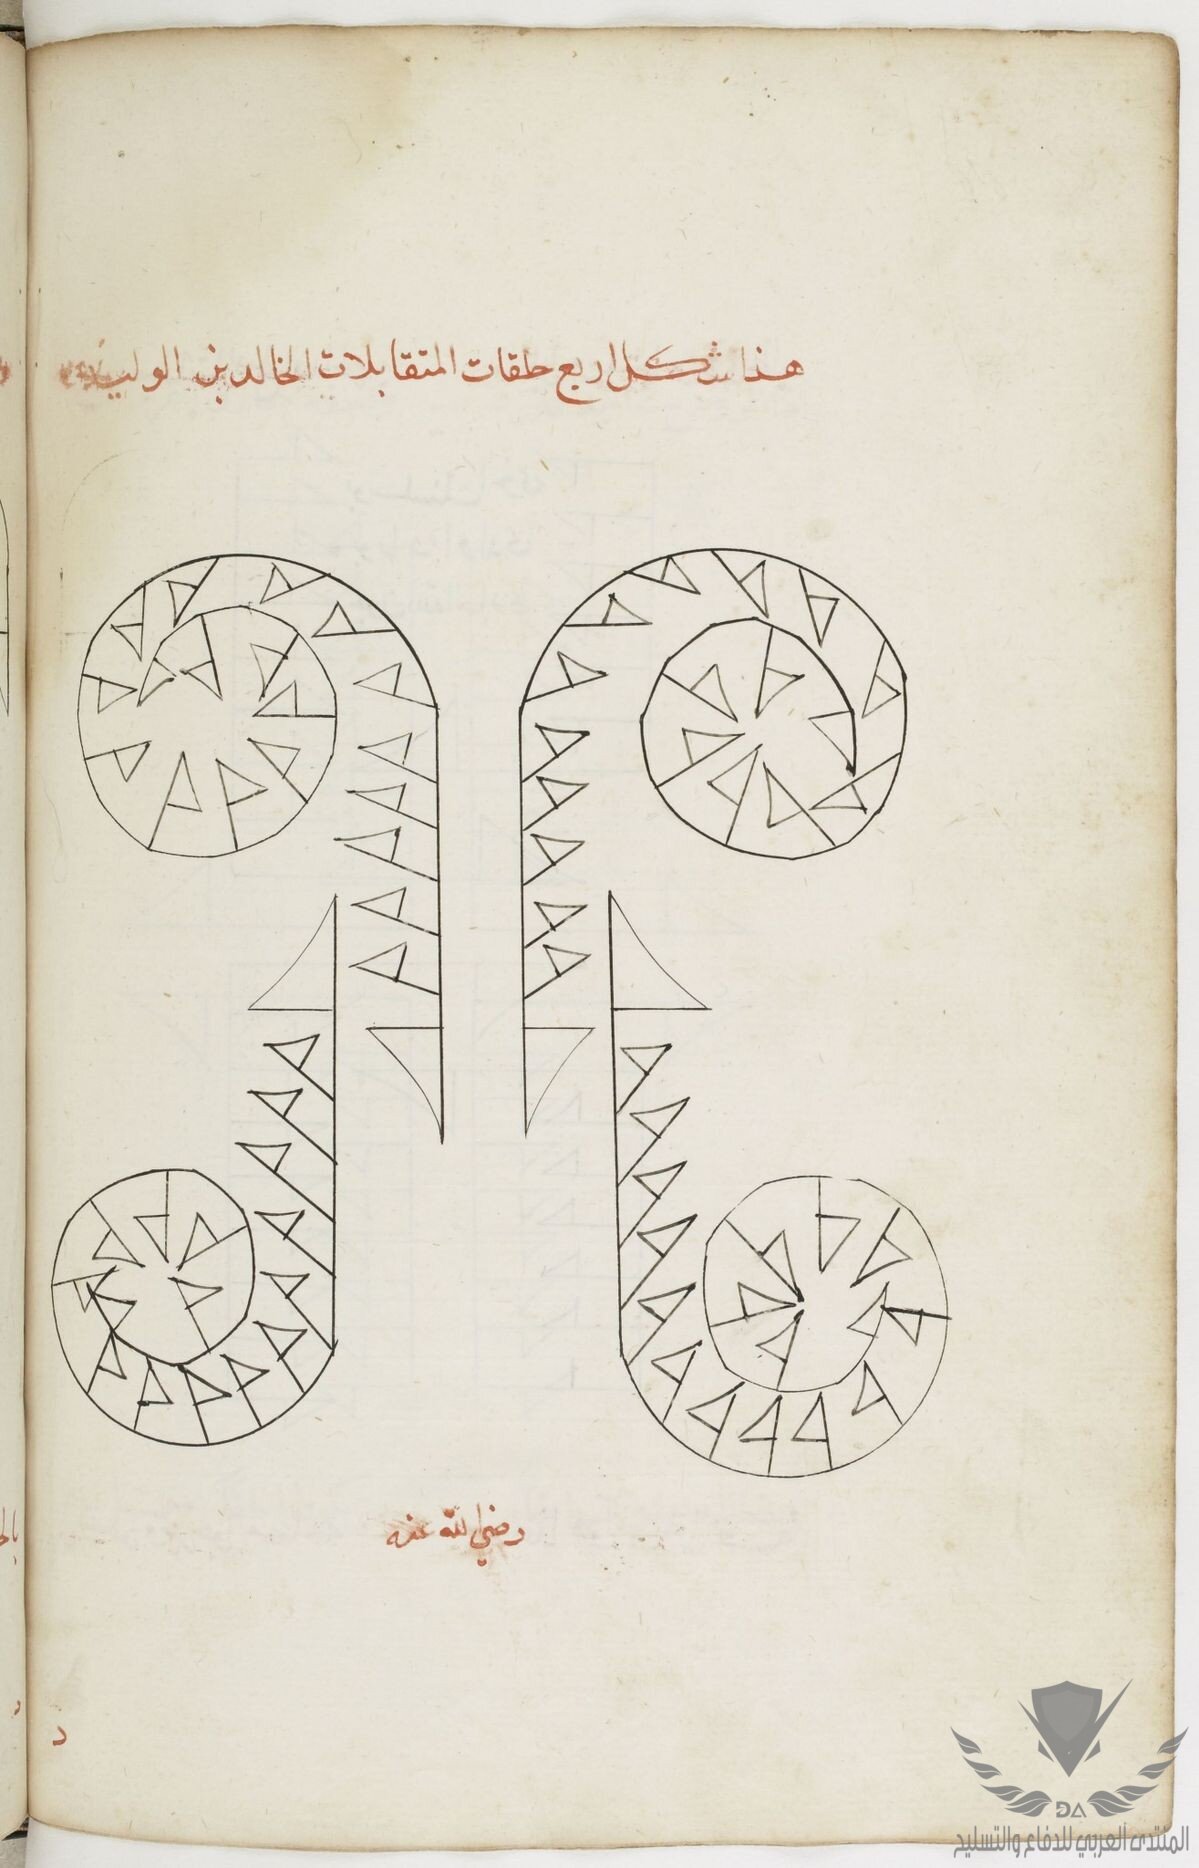 هذا شكل اربع حلقات المتقابلات الخالد بن الوليد
رضي الله عنه
د
DA
المنتدى العربي للدفاع والتسليح